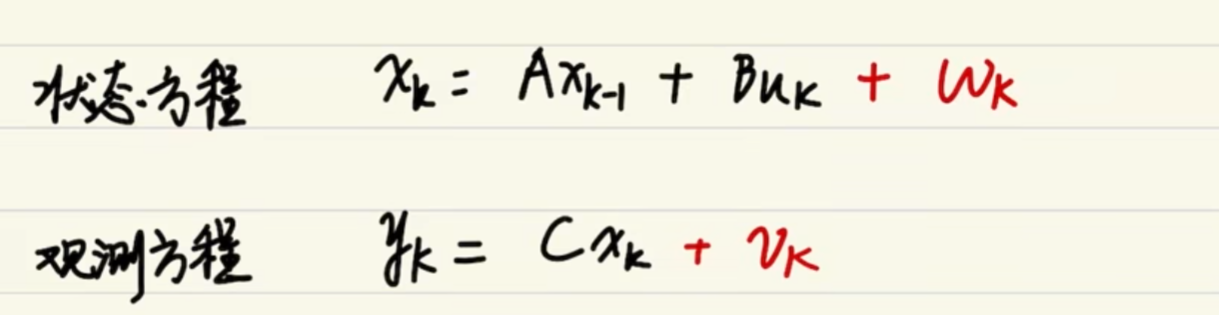 状态方程 xₖ = Axₖ₋₁ + Buₖ + wₖ
观测方程 yₖ = Cxₖ + vₖ